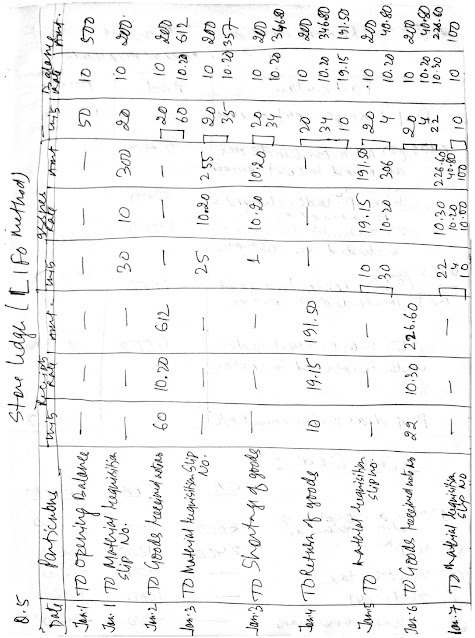 Q.5 Store ledger (LIFO Method)
Date Particulars Receipts Issues Balance
Units Rate Amt. Units Rate Amt. Units Rate Amt.
Jan.1 TO opening Balance — — — — — — 50 10 500
Jan.1 TO Material Requisition Slip No. — — — 30 10 300 20 10 200
Jan.2 TO Goods received notes 60 10.20 612 — — — 20 10 200
60 10.20 612
Jan.3 TO Material Requisition Slip No. — — — 25 10.20 255 20 10 200
35 10.20 357
Jan.3 TO Shortage of goods — — — 1 10.20 10.20 20 10 200
34 10.20 346.80
Jan.4 TO Return of goods 10 19.15 191.50 — — — 20 10 200
34 10.20 346.80
10 19.15 191.50
Jan.5 TO Material Requisition Slip no. — — — 10 19.15 191.50 20 10 200
30 10.20 306 4 10.20 40.80
Jan.6 TO Goods received notes 22 10.30 226.60 20 10 200
4 10.20 40.80
22 10.30 226.60
Jan.7 TO Material Requisition Slip No — — — 22 10.30 226.60 10 10 100
4 10.20 40.80
10 10.00 100